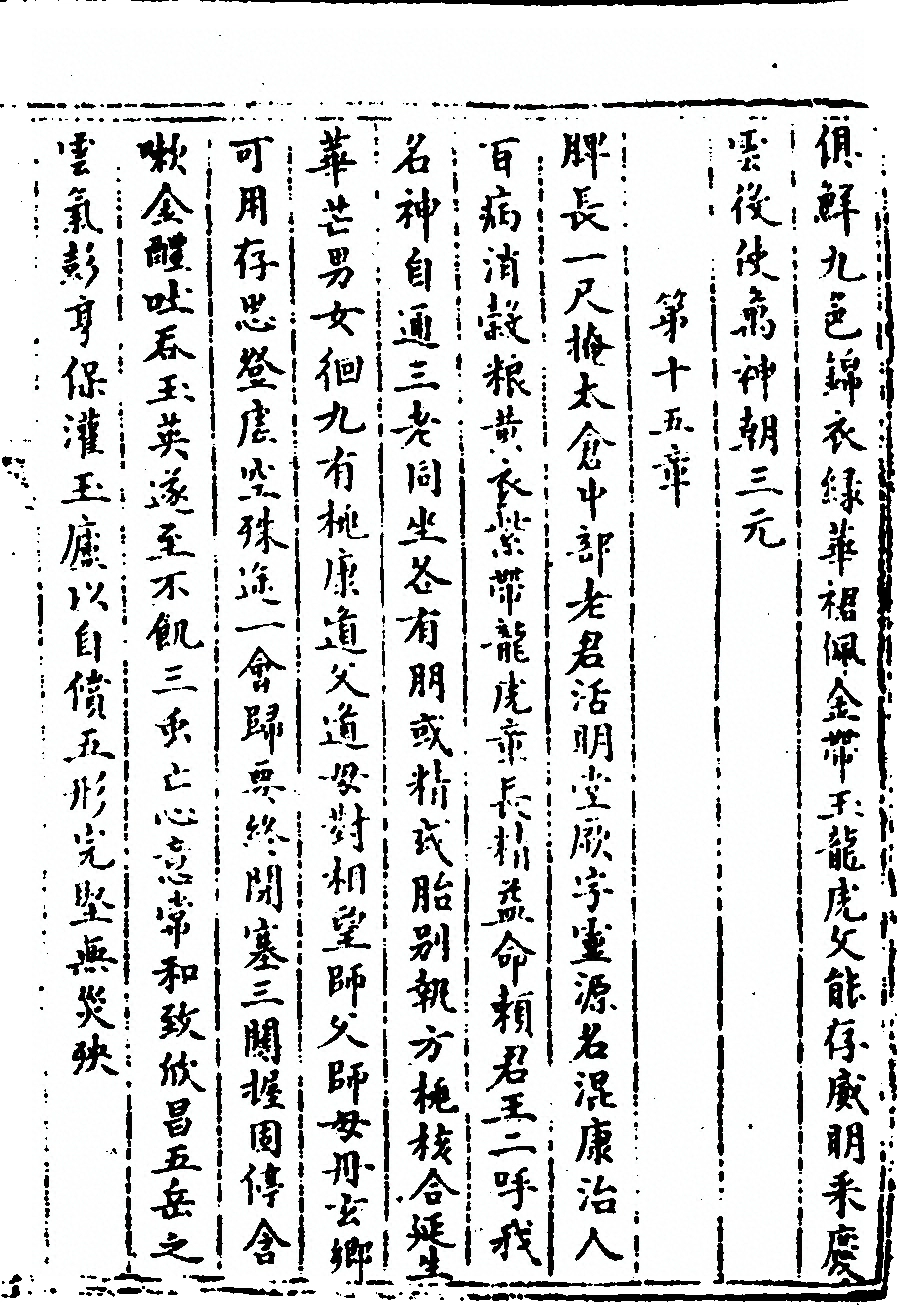 俱鮮九色錦衣綠華裙佩金帶玉龍虎文能存威明乘慶
雲役使萬神朝三元
第十五章
脾長一尺掩太倉中部老君活明堂厥字靈源名混康治人
百病消穀粮黄衣紫帶龍虎章長精益命賴君王二呼我
名神自通三老同坐各有朋或精或胎别執方桃核合延生
華芒男女徊九有桃康道父道母對相望師父師母丹玄鄉
可用存思登虛空殊途一會歸要終閉塞三關握固停含
嗽金醴吐吞玉英遂至不飢三虫亡心意常和致欣昌五岳之
雲氣彭亨保灌玉廬以自償五形完堅無災殃